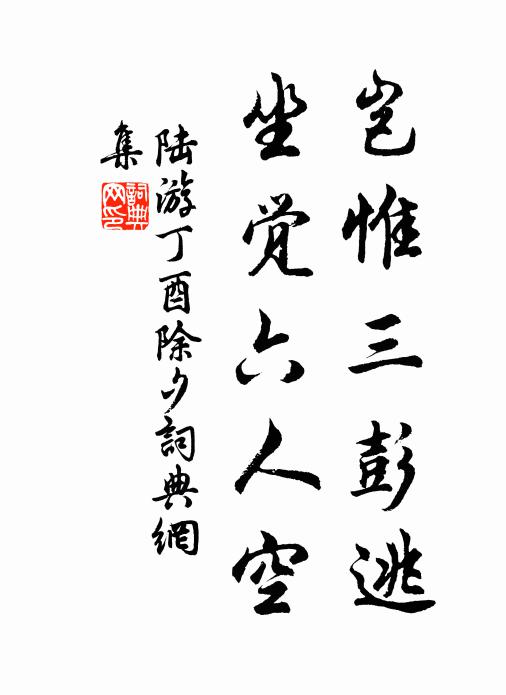 岂惟三彭逃
坐觉六人空
陆游丁酉除夕詞典網
集
詞典
网印